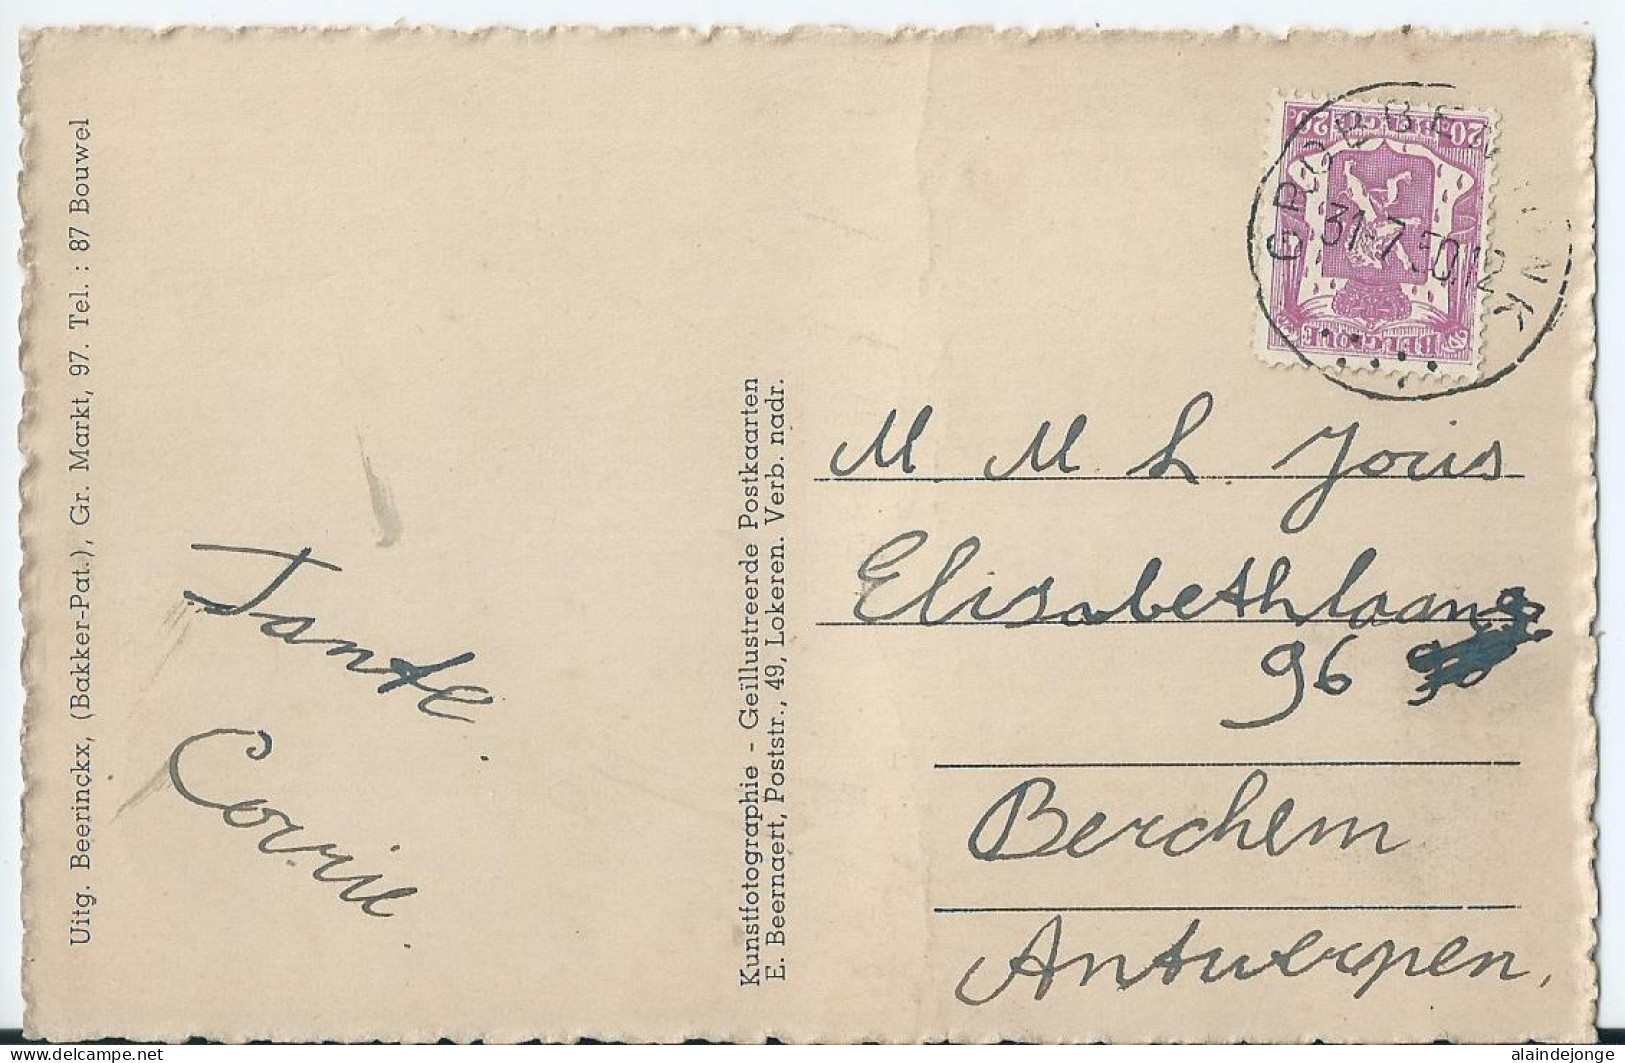 Uitg. Beerinckx, (Bakker-Pat.), Gr. Markt, 97. Tel. : 87 Bouwel
Tante
Corrie.
Kunstfotographie - Geïllustreerde Postkaarten
E. Beernaert, Poststr., 49, Lokeren. Verb. nadr.
20c BELGIË 20c
BELGIQUE
31-7 50.12
M M L Joris
Elisabethlaan
96
Berchem
Antwerpen.
delcampe.net
alaindejonge